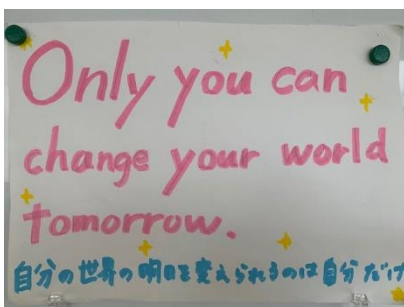 Only you can
change your world
tomorrow.
自分の世界の明日を変えられるのは自分だけ